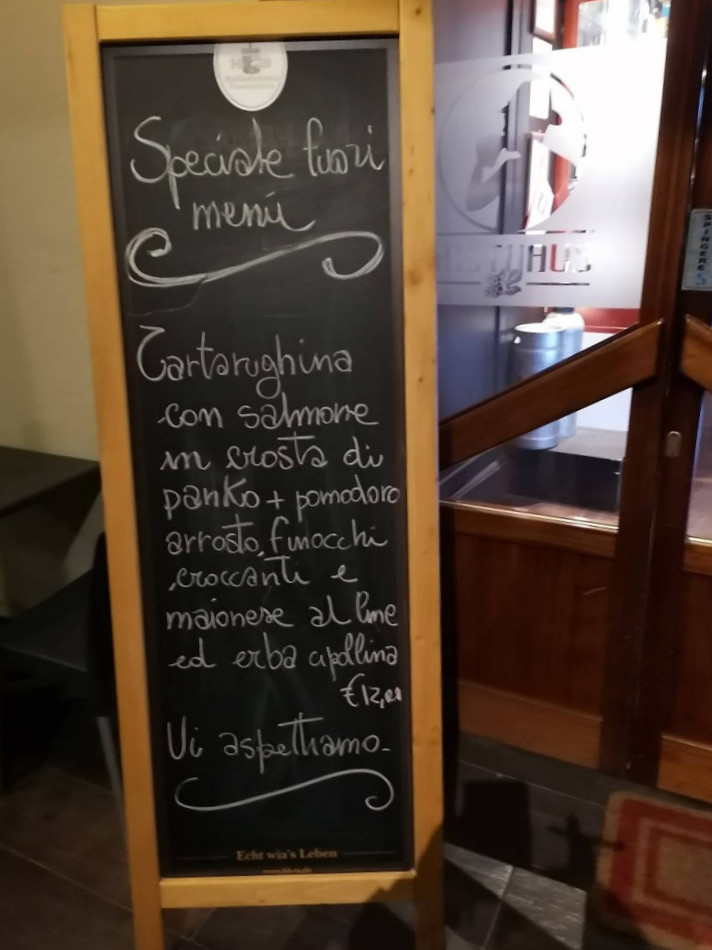 Speciale fuori
menù
Tartarughina
con salmone
in crosta di
panko + pomodoro
arrosto, finocchi
croccanti e
maionese al lime
ed erba cipollina
€12,00
Vi aspettiamo.
Echt wia's Leben
SPINGERE